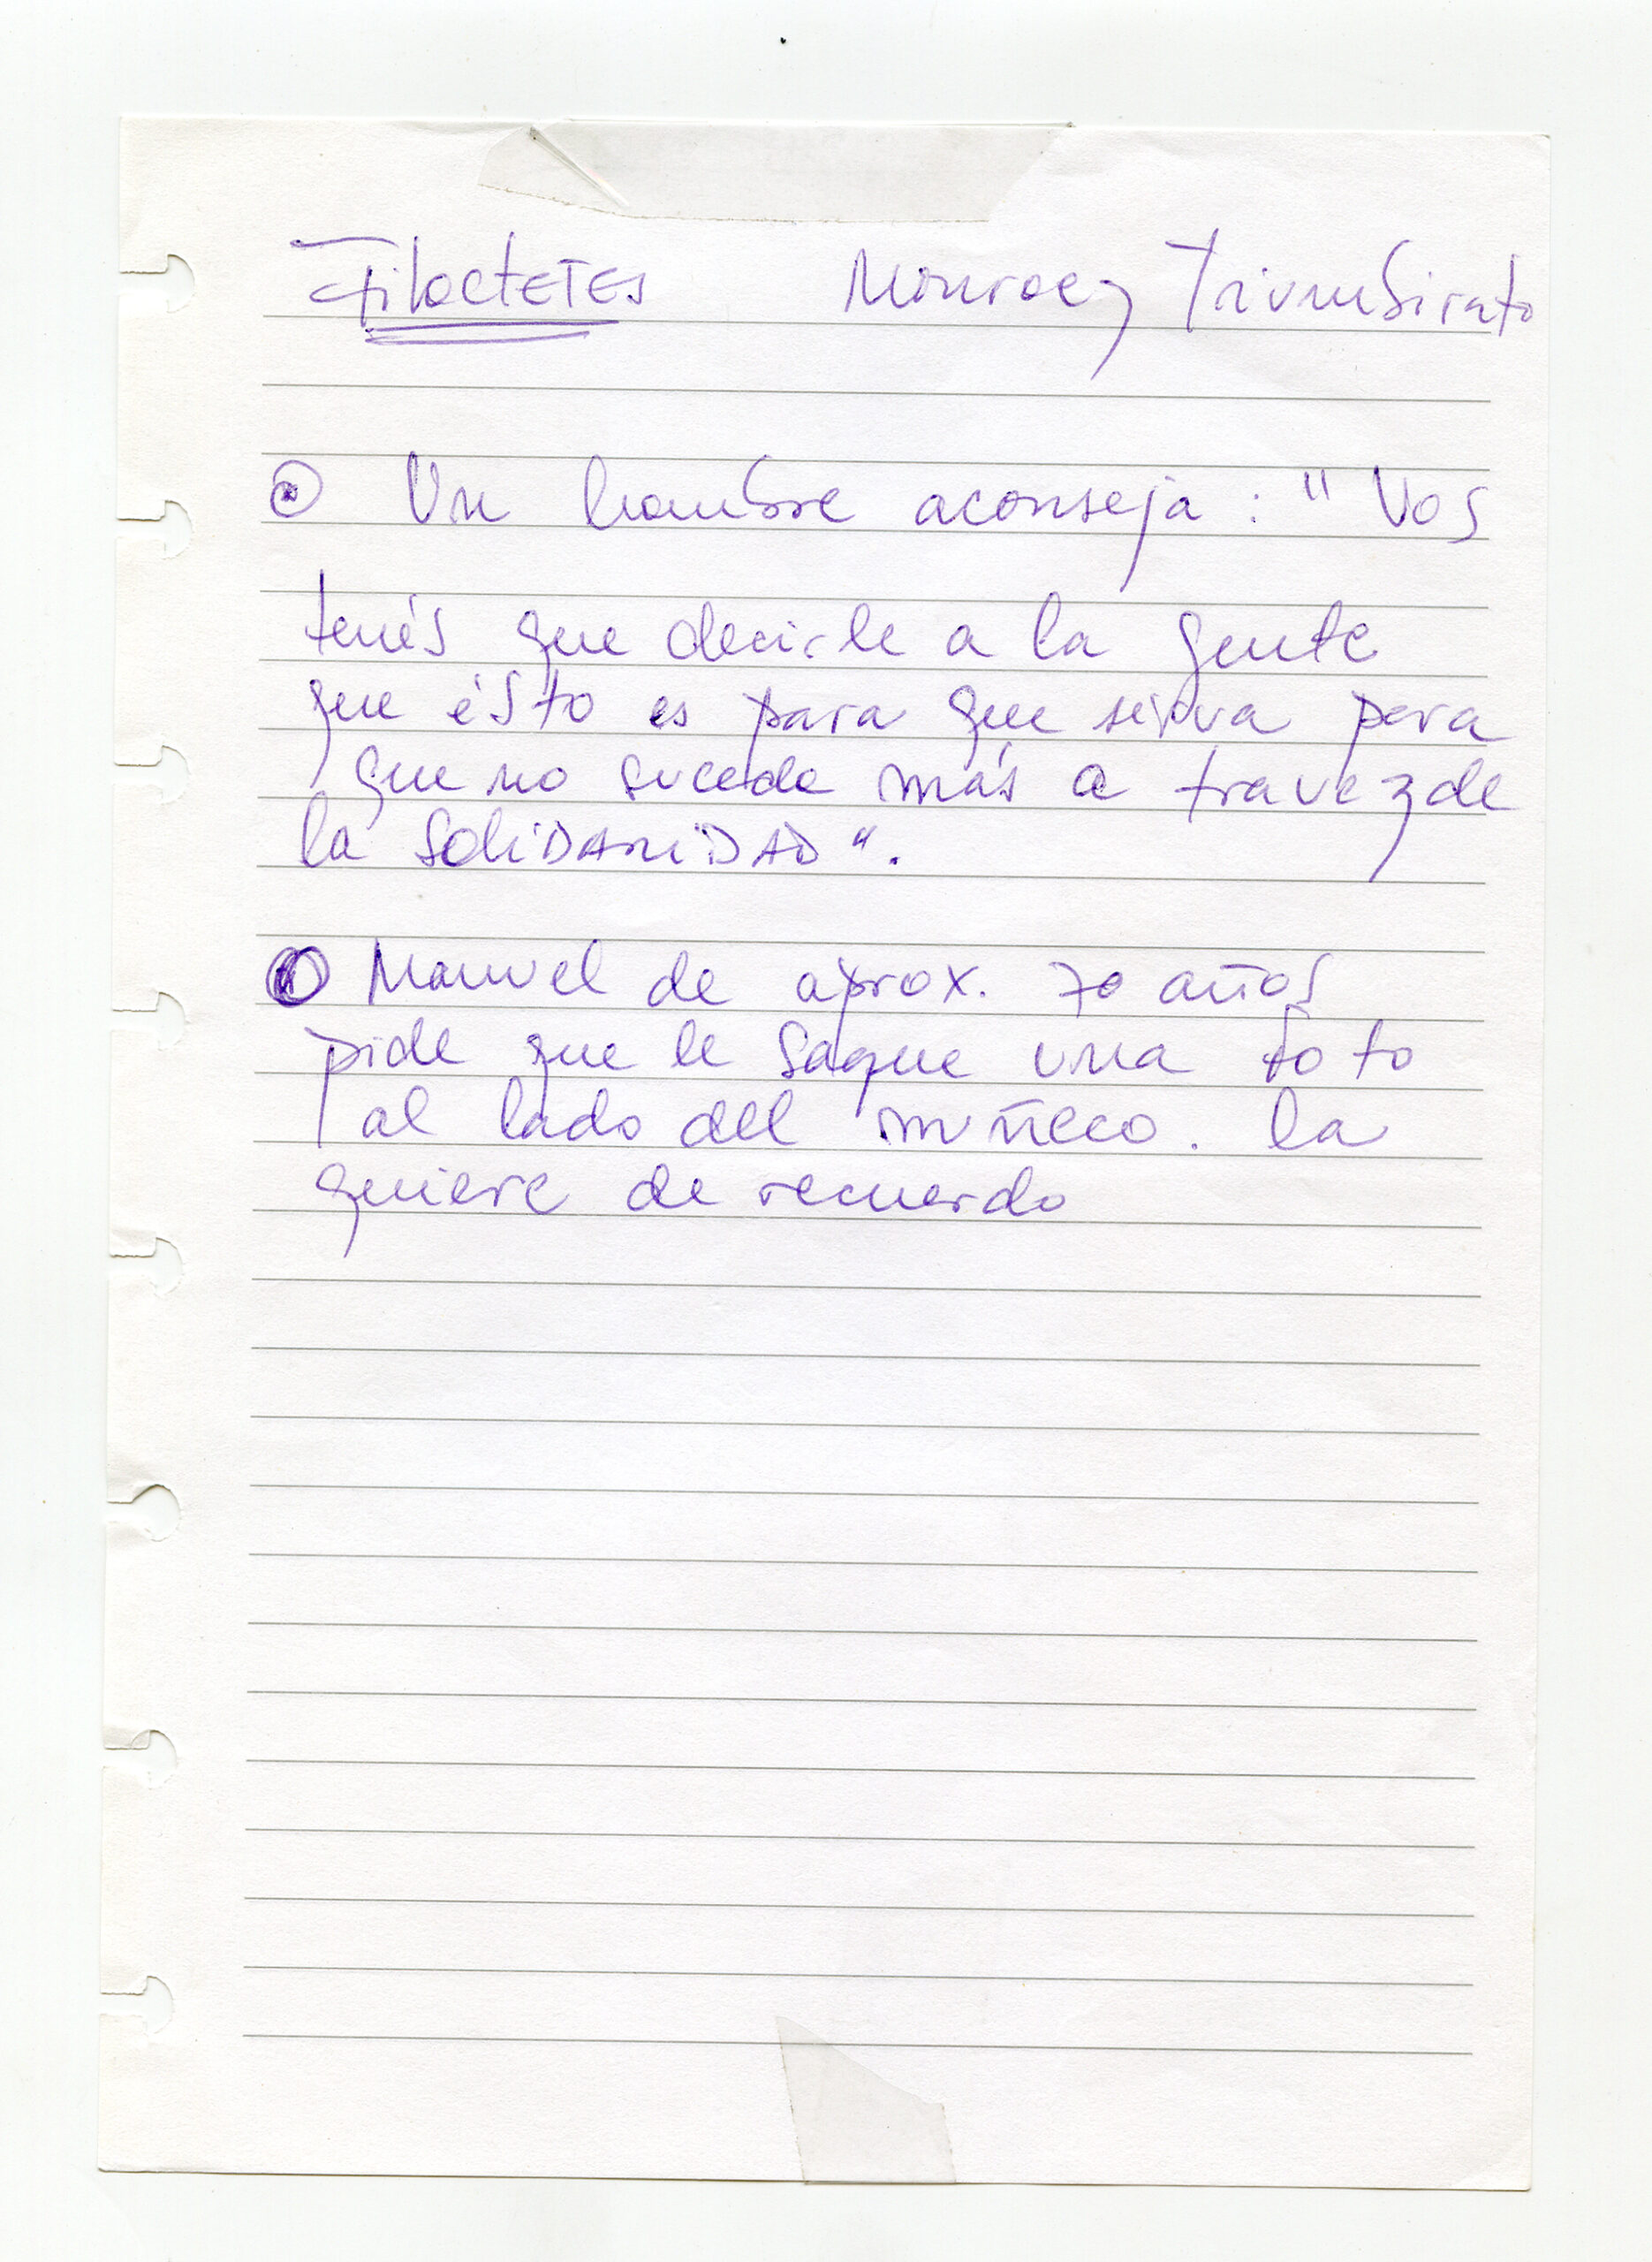 Filoctetes Monroe y Triunbirato
Un hombre aconseja: "Vos
tenés que decirle a la gente
que ésto es para que sirva para
que no suceda más a travez de
la SOLIDARIDAD".
Manuel de aprox. 70 años
pide que le saque una foto
al lado del muñeco. la
quiere de recuerdo